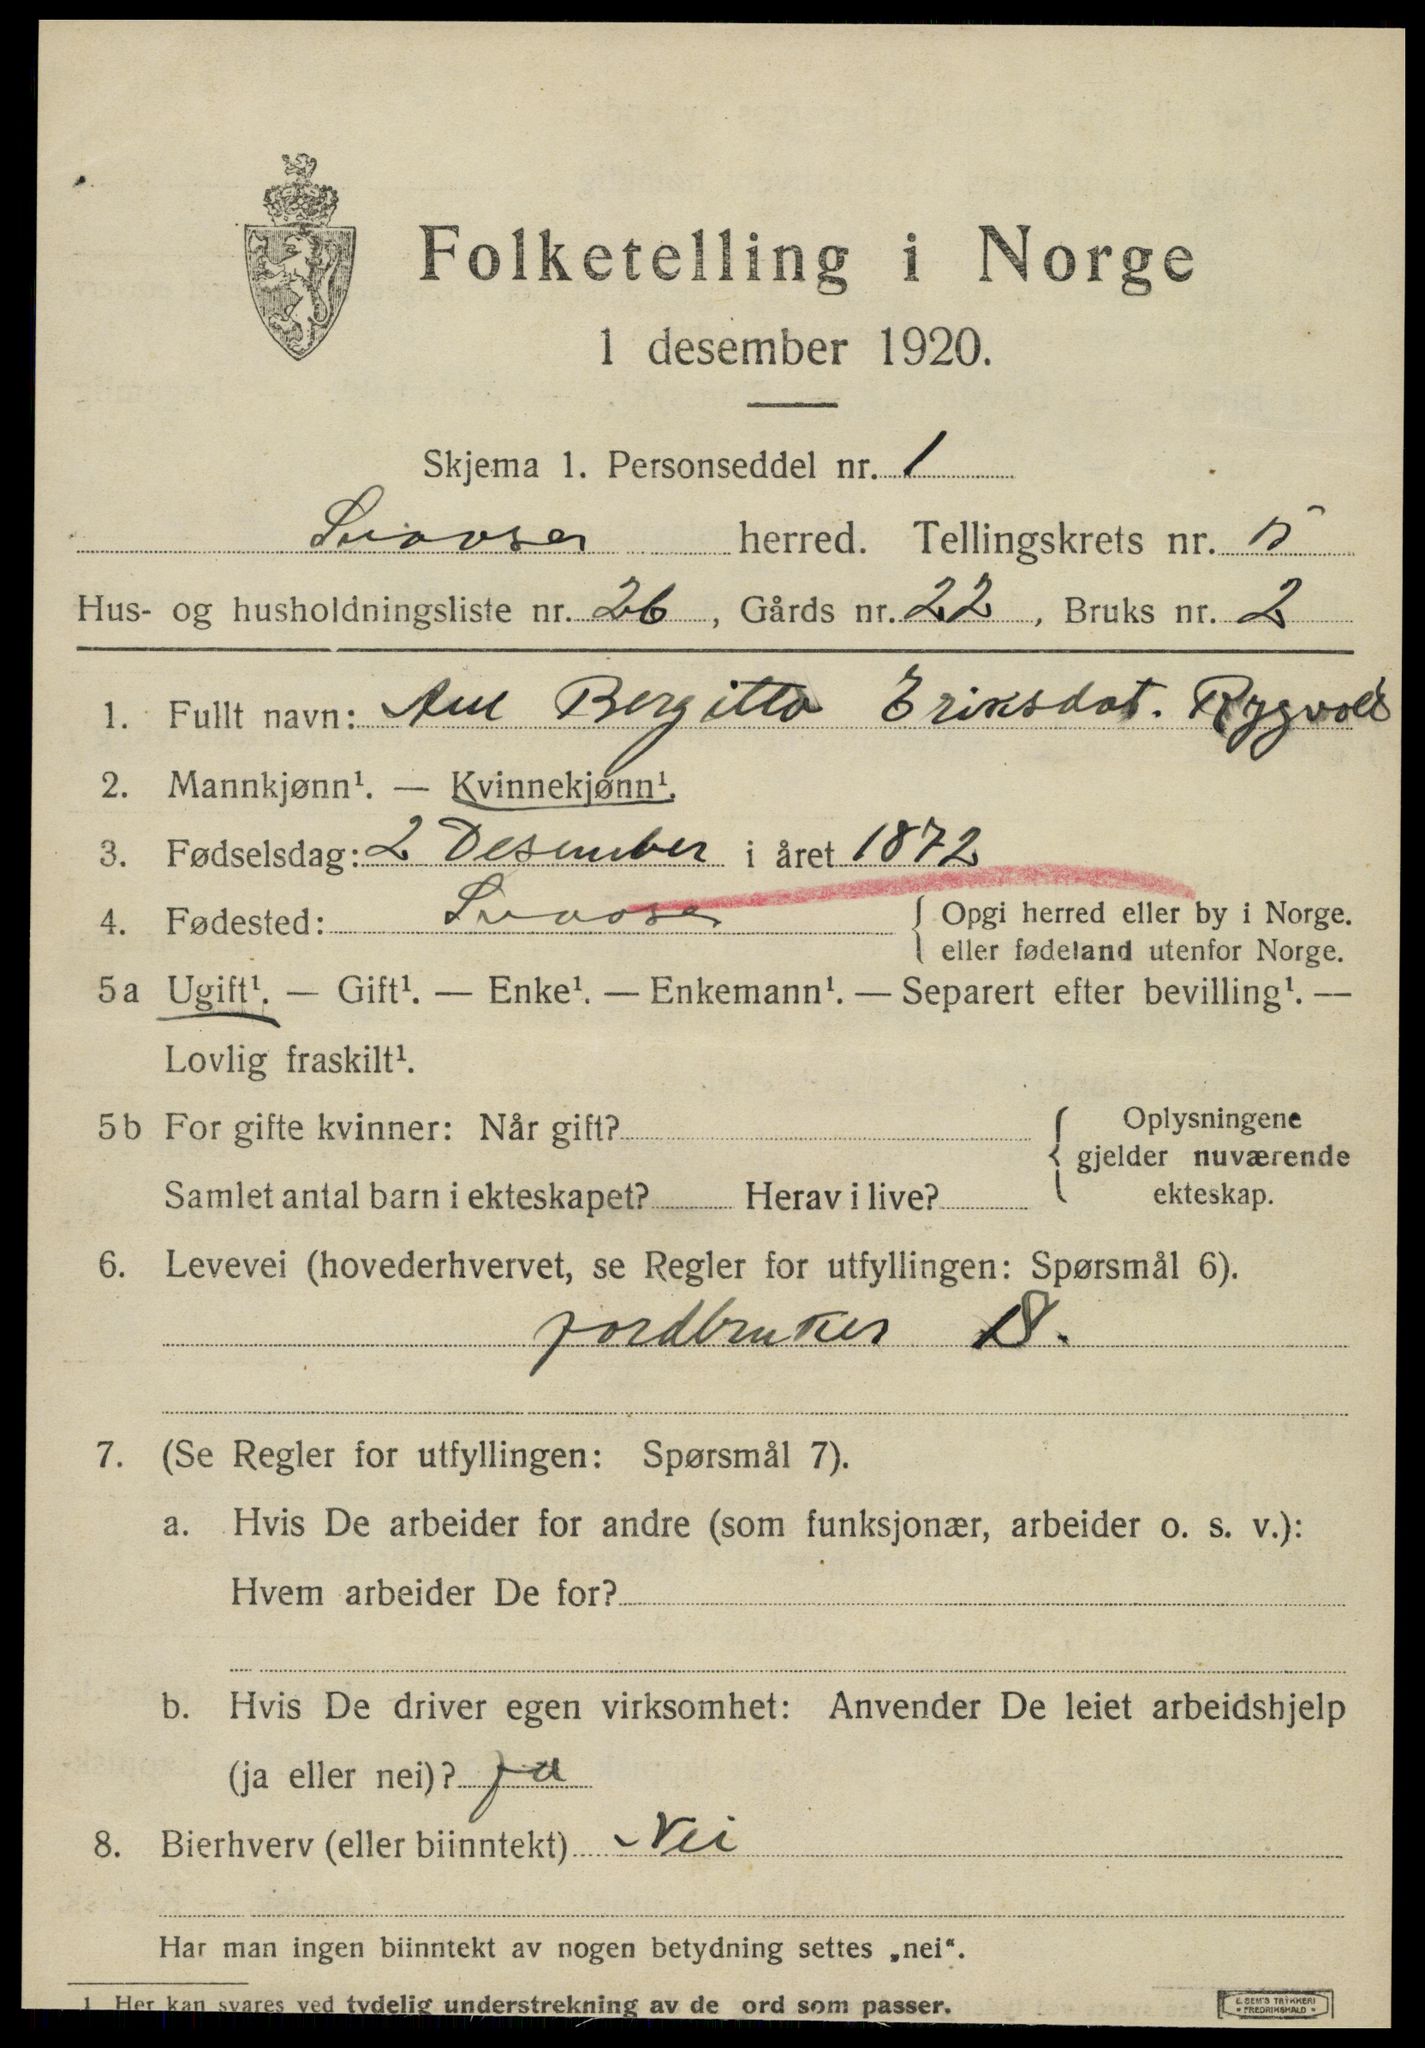 Folketelling i Norge
1 desember 1920.
Skjema 1. Personseddel nr. 1
Snaasa herred. Tellingskrets nr. 5
Hus- og husholdningsliste nr. 26, Gårds nr. 22, Bruks nr. 2
1. Fullt navn: Ane Bergitta Eriksdat. Rygvold
2. Mannkjønn¹. — Kvinnekjønn¹.
3. Fødselsdag: 2 Desember i året 1872
4. Fødested: Snaasa { Opgi herred eller by i Norge.
eller fødeland utenfor Norge.
5a Ugift¹. — Gift¹. — Enke¹. — Enkemann¹. — Separert efter bevilling¹. —
Lovlig fraskilt¹.
5b For gifte kvinner: Når gift? { Oplysningene
gjelder nuværende
Samlet antal barn i ekteskapet? Herav i live? ekteskap.
6. Levevei (hovederhvervet, se Regler for utfyllingen: Spørsmål 6).
jordbruker S.
7. (Se Regler for utfyllingen: Spørsmål 7).
a. Hvis De arbeider for andre (som funksjonær, arbeider o. s. v.):
Hvem arbeider De for?
b. Hvis De driver egen virksomhet: Anvender De leiet arbeidshjelp
(ja eller nei)? ja
8. Bierhverv (eller biinntekt) Nei
Har man ingen biinntekt av nogen betydning settes „nei“.
1 Her kan svares ved tydelig understrekning av de ord som passer.
E. SEM'S TRYKKERI
• FREDRIKSHALD •